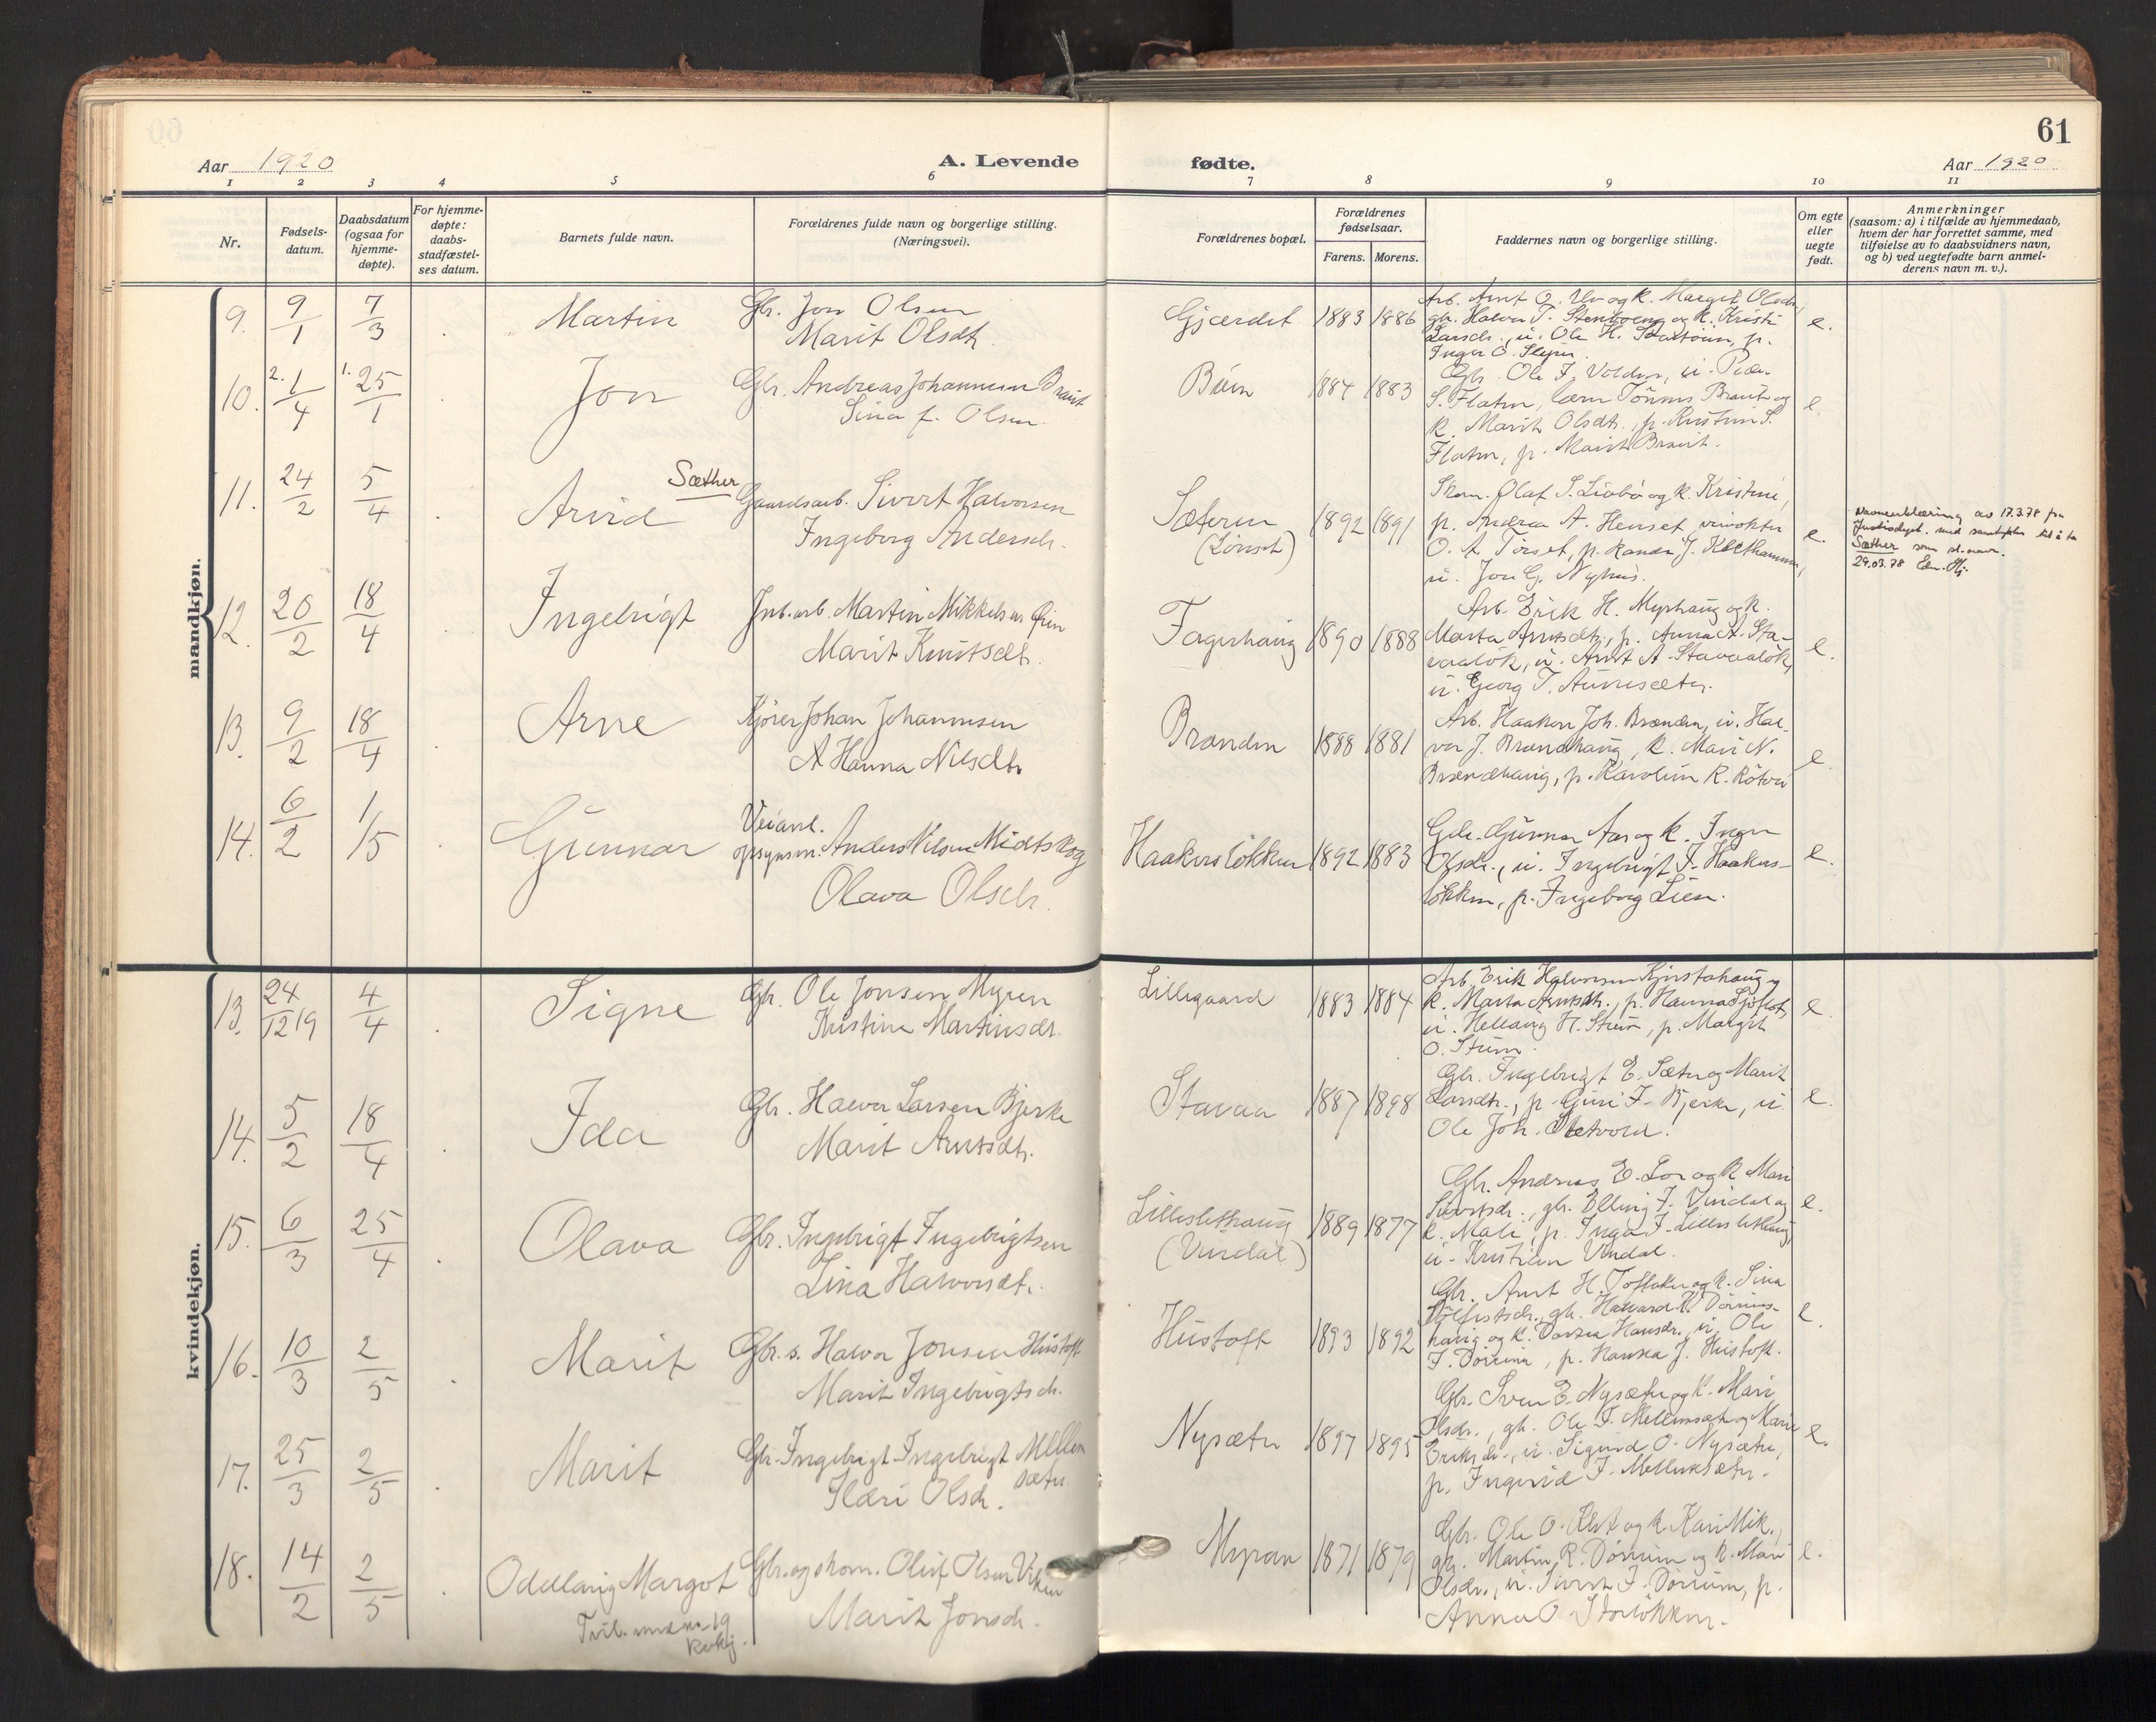 61
Aar 1920
A. Levende fødte.
Aar 1920
1 2 3 4 5 6 7 8 9 10 11
Nr.
Fødsels-
datum.
Daabsdatum
(ogsaa for
hjemme-
døpte).
For hjemme-
døpte:
daabs-
stadfæstel-
ses datum.
Barnets fulde navn.
Forældrenes fulde navn og borgerlige stilling.
(Næringsvei).
Forældrenes bopæl.
Forældrenes
fødselsaar.
Farens. Morens.
Faddernes navn og borgerlige stilling.
Om egte
eller
uegte
født.
Anmerkninger
(saasom: a) i tilfælde av hjemmedaab,
hvem der har forrettet samme, med
tilføielse av to daabsvidners navn,
og b) ved uegtefødte barn anmel-
derens navn m. v.).
mandkjøn.
9. 9/1 7/3 Martin
Gbr. Jon Olsen
Marit Olsdtr.
Gjærdet 1883 1886
Arb. Arnt O. og k. Margit Olsdtr.,
gbr. Halvor T. Stenboeng og k. Kristi
Larsdr., u. Ole H., p.
Inger O.
e.
10. 2. 1/4 1. 25/1 Jon
Gbr. Andreas Johannesen Braut
Sina f. Olsen
Bøen 1884 1883
Gbr. Ole J. Volden, u. Peder
S. Flaten, Tønnes Braut og
k. Marit Olsdtr., p. Kristine S.
Flaten, p. Marit Braut.
e.
11. 24/2 5/4 Arvid Sæther
Gaardsarb. Sivert Halvorsen
Ingeborg Andersdr.
Sæteren
(Lønset)
1892 1891
Skom. Olaf S. Liabø og k. Kristine,
p. Andrea A. Henset,
O. A. Torset, p. Randi J. Klethammer,
u. Jon G. Nyhus.
e.
Navneerklæring av 17.3.78 fra
Justisdept. med samtykke til å ta
Sæther som sl.navn.
29.03.78
12. 20/2 18/4 Ingebrigt
Jnb.arb. Martin Mikkelsen Øien
Marit Knutsdtr.
Fagerhaug 1890 1888
Arb. Erik H. Myrhaug og k.
Marta Arntsdtr., p. Anna A. Sta-
vaaløk, u. Arnt A. Stavaaløk,
u. Georg T. Aunesæter.
e.
13. 9/2 18/4 Arne
Kjører Johan Johannesen
A Hanna Nilsdtr
Brænden 1888 1881
Arb. Haakon Joh. Brænden, u. Hal-
vor J. Brændhaug, k. Mari N.
Brændhaug, p. Karoline R. Røtvei
e.
14. 6/2 1/5 Gunnar
Veianl.
opsynsm. Anders Nilsen Midtskog
Olava Olsdr.
Haakersløkken 1892 1883
Gbr. Gunnar Aas og k. Inger
Olsdr., u. Ingebrigt J. Haakers-
løkken, p. Ingeborg Lien.
e.
kvindekjøn.
13. 24/12 19 4/4 Signe
Gbr. Ole Jonsen Myren
Kristine Martinsdr.
Lillegaard 1883 1884
Arb. Erik Halvorsen Kjerstahaug og
k. Marta Arntsdr., p. Hanna Sjøflot,
u. Hellaug H. Stuen, p. Margit
O. Stuen.
e.
14. 5/2 18/4 Ida
Gbr. Halvor Larsen Bjerke
Marit Arntsdtr.
Stavaa 1887 1898
Gbr. Ingebrigt E. Sæter og Marit
Larsdtr., p. Guri J. Bjerke, u.
Ole Joh. Sletvold.
e.
15. 6/3 25/4 Olava
Gbr. Ingebrigt Ingebrigtsen
Lina Halvorsdtr.
Lilleslethaug
(Vindal)
1889 1877
Gbr. Andreas E. Loe og k. Mari
Sivertsdr., gbr. Elling J. Vindal og
k. Mali, p. Inga J. Lilleslethaug,
u. Kristian Vindal.
e.
16. 10/3 2/5 Marit
Gbr. s. Halvor Jonsen Hustoft
Marit Ingebrigtsdr.
Hustoft 1893 1892
Gbr. Arnt H. Toftaker og k. Sina
gbr. Halvard R. Dørrums-
haug og k. Dorthea Hansdr., u. Ole
J. Dørrum, p. Hanna J. Hustoft.
e.
17. 25/3 2/5 Marit
Gbr. Ingebrigt Ingebrigt Mellem
sæter
Olsdr.
Nysæter 1897 1895
Gbr. Sven E. Nysæter og k. Mari
Olsdr., gbr. Ole J. Mellemsæter og Mari
Eriksdr., u. Sigurd O. Nysæter,
p. Ingerid J. Mellemsæter.
e.
18. 14/2 2/5 Oddlaug Margot
Gbr. og skom. Oluf Olsen Viken
Marit Jonsdr.
Tvil. med no 19
kvkj.
Myran 1871 1879
Gbr. Ole O. og k. Kari Mik.,
gbr. Martin R. Dørrum og k. Mari
Olsdr., u. Sivert J. Dørrum, p.
Anna O. Storløkken.
e.